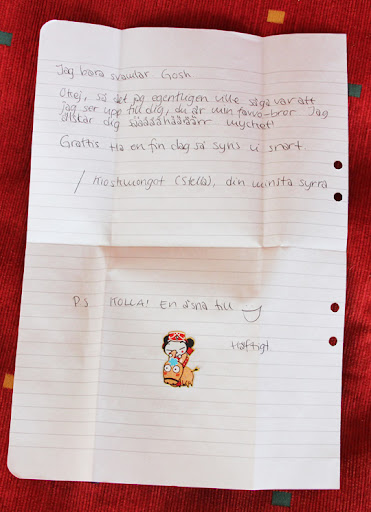 Jag bara svamlar Gosh
Okej, så det jag egentligen ville säga var att
jag ser upp till dig, du är min favo-bror Jag
älskar dig såååååhääärr mycket!
Grattis Ha en fin dag så syns vi snart.
/ Kioskmongot (Stella), din minsta syrra
PS KOLLA! En åsna till
Häftigt